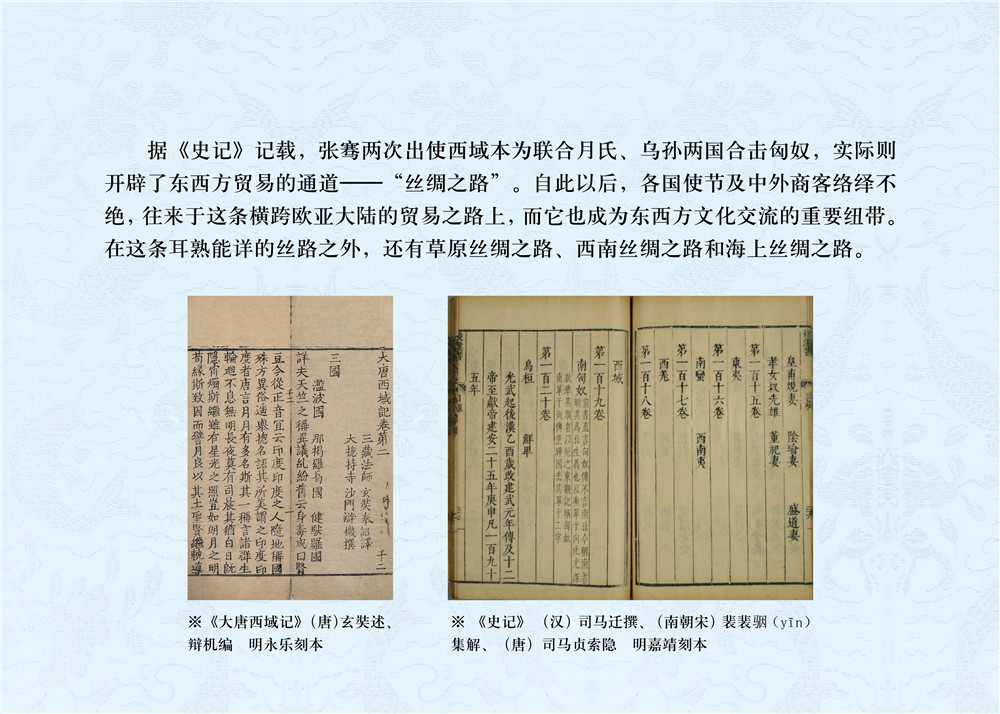 据《史记》记载，张骞两次出使西域本为联合月氏、乌孙两国合击匈奴，实际则
开辟了东西方贸易的通道——“丝绸之路”。自此以后，各国使节及中外商客络绎不
绝，往来于这条横跨欧亚大陆的贸易之路上，而它也成为东西方文化交流的重要纽带。
在这条耳熟能详的丝路之外，还有草原丝绸之路、西南丝绸之路和海上丝绸之路。
大唐西域記卷第二
三藏法師玄奘奉詔譯
大揔持寺沙門辯機撰
三國
濫波國 那揭羅曷國 健馱羅國
詳夫天竺之稱異議糺紛舊云身毒或曰賢
豆今從正音宜云印度印度之人隨地稱國
殊方異俗遥舉揔名語其所美謂之印度印
度者唐言月月有多名斯其一稱言諸群生
輪迴不息無明長夜莫有司晨其猶白日旣
隱宵燭斯繼雖有星光之照豈如朗月之明
苟緣斯致因而譬月良以其土聖賢繼軌導
皇甫規妻 陰瑜妻 盛道妻
孝女叔先雄 董祀妻
第一百十五卷
東夷
第一百十六卷
南蠻 西南夷
第一百十七卷
西羌
第一百十八卷
西域
第一百十九卷
南匈奴
第一百二十卷
烏桓 鮮卑
光武起後漢乙酉歲改建武元年傳及十二
帝至獻帝建安二十五年庚申凡一百九十
五年
※《大唐西域记》（唐）玄奘述、
辩机编 明永乐刻本
※ 《史记》 （汉）司马迁撰、（南朝宋）裴裴骃（yīn）
集解、（唐）司马贞索隐 明嘉靖刻本